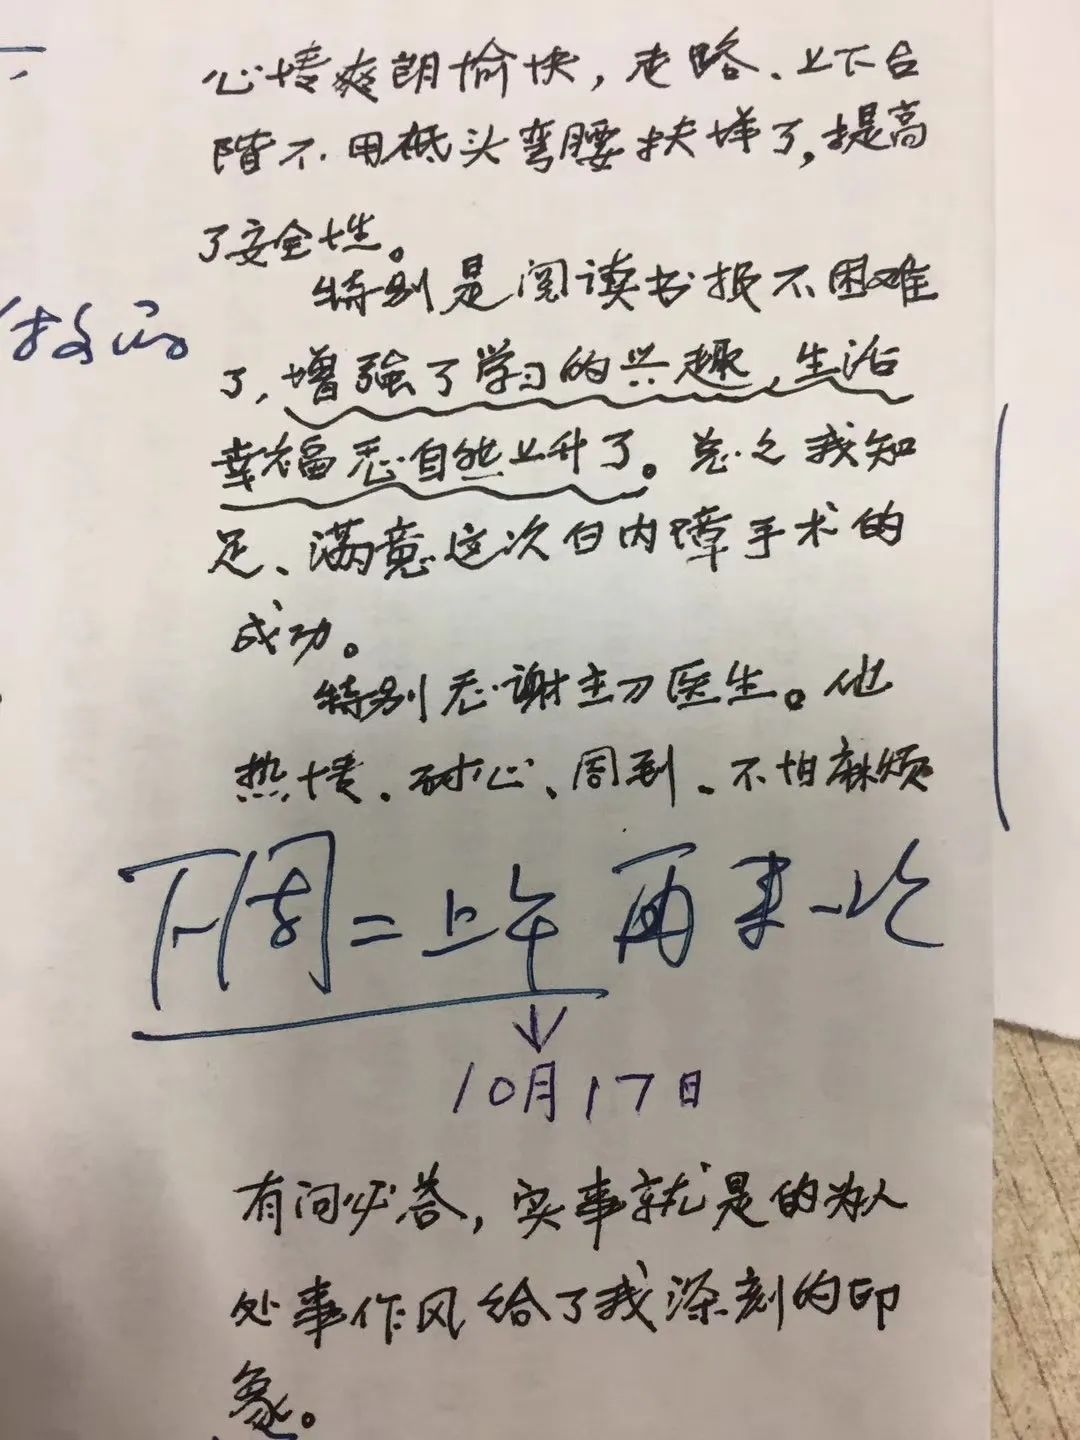 心情爽朗愉快，走路、上下台
階不用低头弯腰扶梯了，提高
了安全性。
特别是阅读书报不困难
了，增強了学习的兴趣，生活
幸福感自然上升了。总之我知
足、满意这次白内障手术的
成功。
特别感谢主刀医生。他
热情、耐心、周到、不怕麻烦
下周二上午 再来一次
10月17日
有问必答，实事就是的为人
处事作风给了我深刻的印
象。